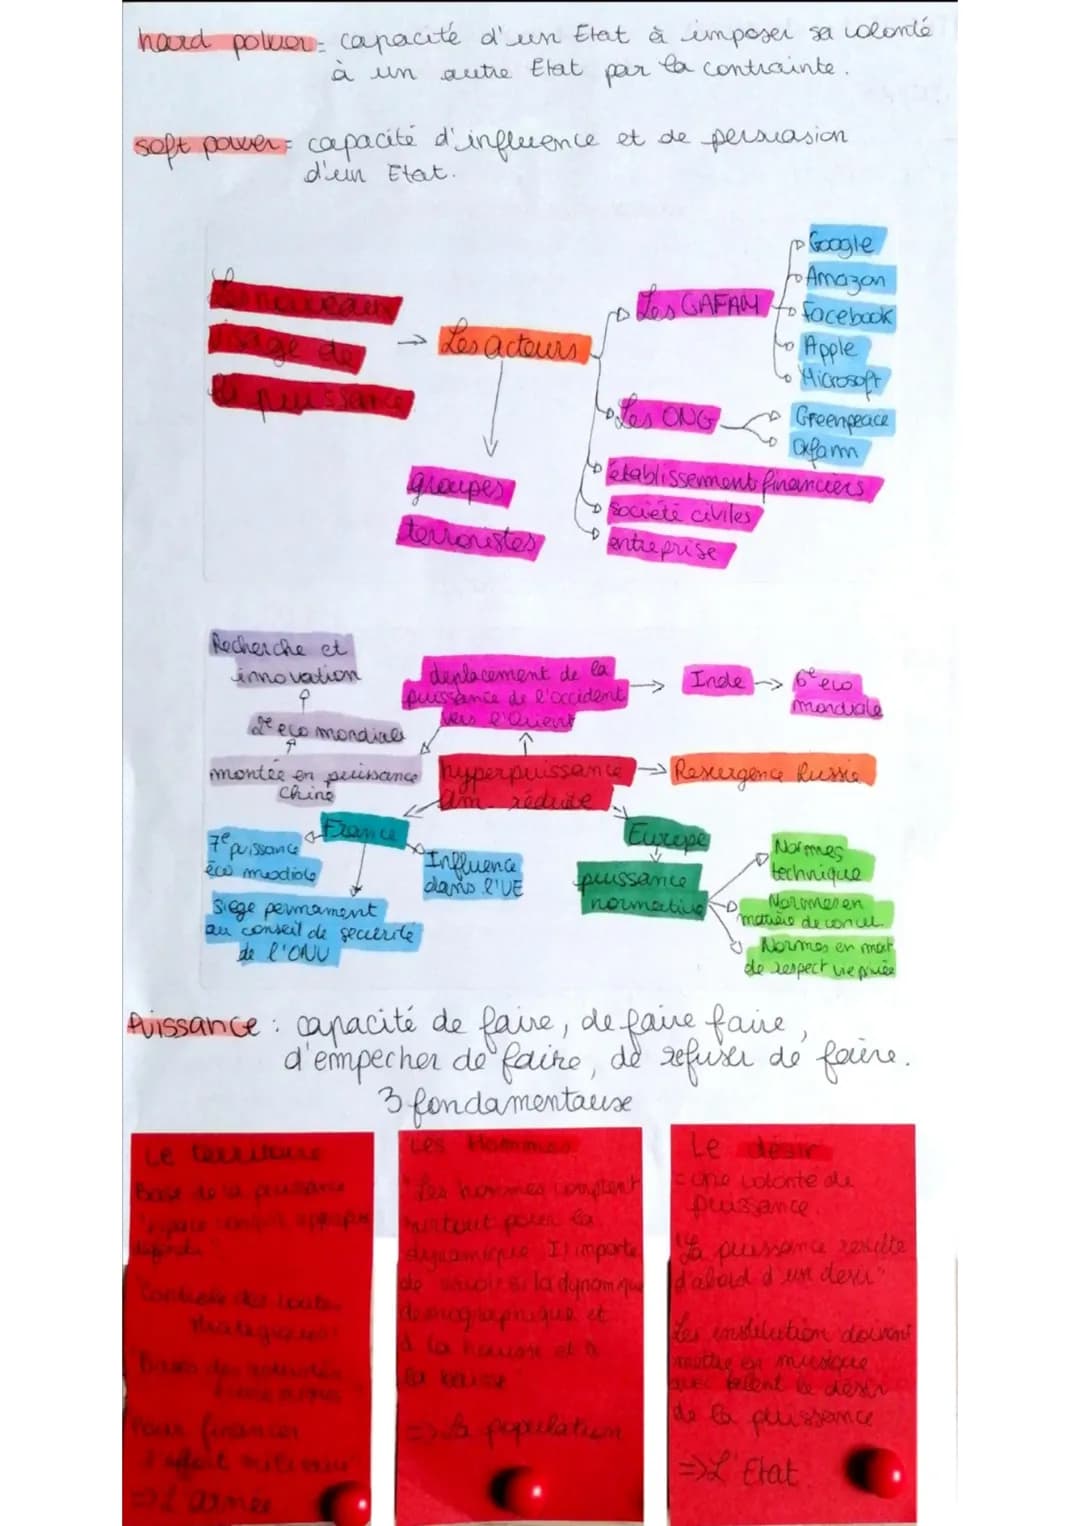 hard power = capacité d'un Etat à imposer sa volonté
à un autre Etat par la contrainte.
soft power = capacité d'influence et de persuasion
d'un Etat.
de
la puissance
→ Les acteurs
groupes
terroristes
Les GAFAM
Google
Amazon
facebook
Apple
Microsoft
Les ONG
Greenpeace
Oxfam
établissement financiers
société civiles
entreprise
Recherche et
innovation
2e eco mondiale
montée en puissance
Chine
deplacement de la
puissance de l'occident
vers l'Orient
Inde → 6e eco
mondiale
hyperpuissance
am. réduite
→ Resurgence Russie
France
7e puissance
éco mondiale
Influence
dans l'UE
Siege permament
au conseil de securite
de l'ONU
Europe
puissance
normative
Normes
technique
Normes en
matière de
Normes en mat
de respect vie privée
Puissance : capacité de faire, de faire faire,
d'empecher de faire, de refuser de faire.
3 fondamentause
Le territoire
Base de la puissance
Pour financer
=> L'armée
Les Hommes
"Les hommes comptent
surtout pour la
dynamique Il importe
de la dynamique
demographique et
à la hausse et à
la baisse"
=> la population
Le désir
= une volonté de
puissance
"La puissance resulte
d'abord d'un desir"
Les institution doivent
mettre en musique
avec talent le désir
de la puissance
=> L'Etat